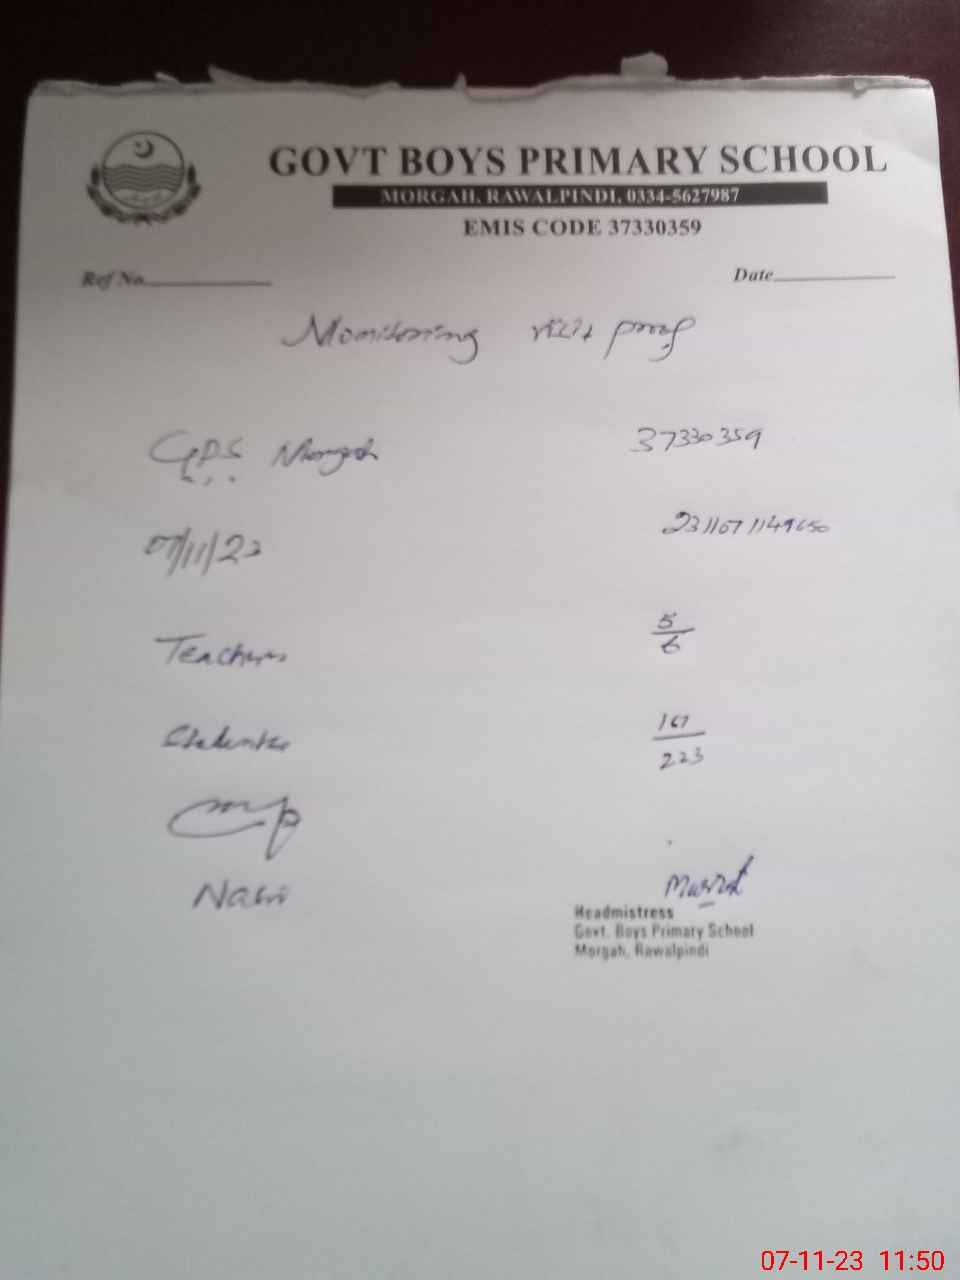 GOVT BOYS PRIMARY SCHOOL
MORGAH, RAWALPINDI, 0334-5627987
EMIS CODE 37330359
Ref No.
Date
Monitoring visit proof
GPS Morgah 37330359
07/11/23
Teachers 5/6
Students 167/223
Headmistress
Govt. Boys Primary School
Morgah, Rawalpindi
07-11-23 11:50